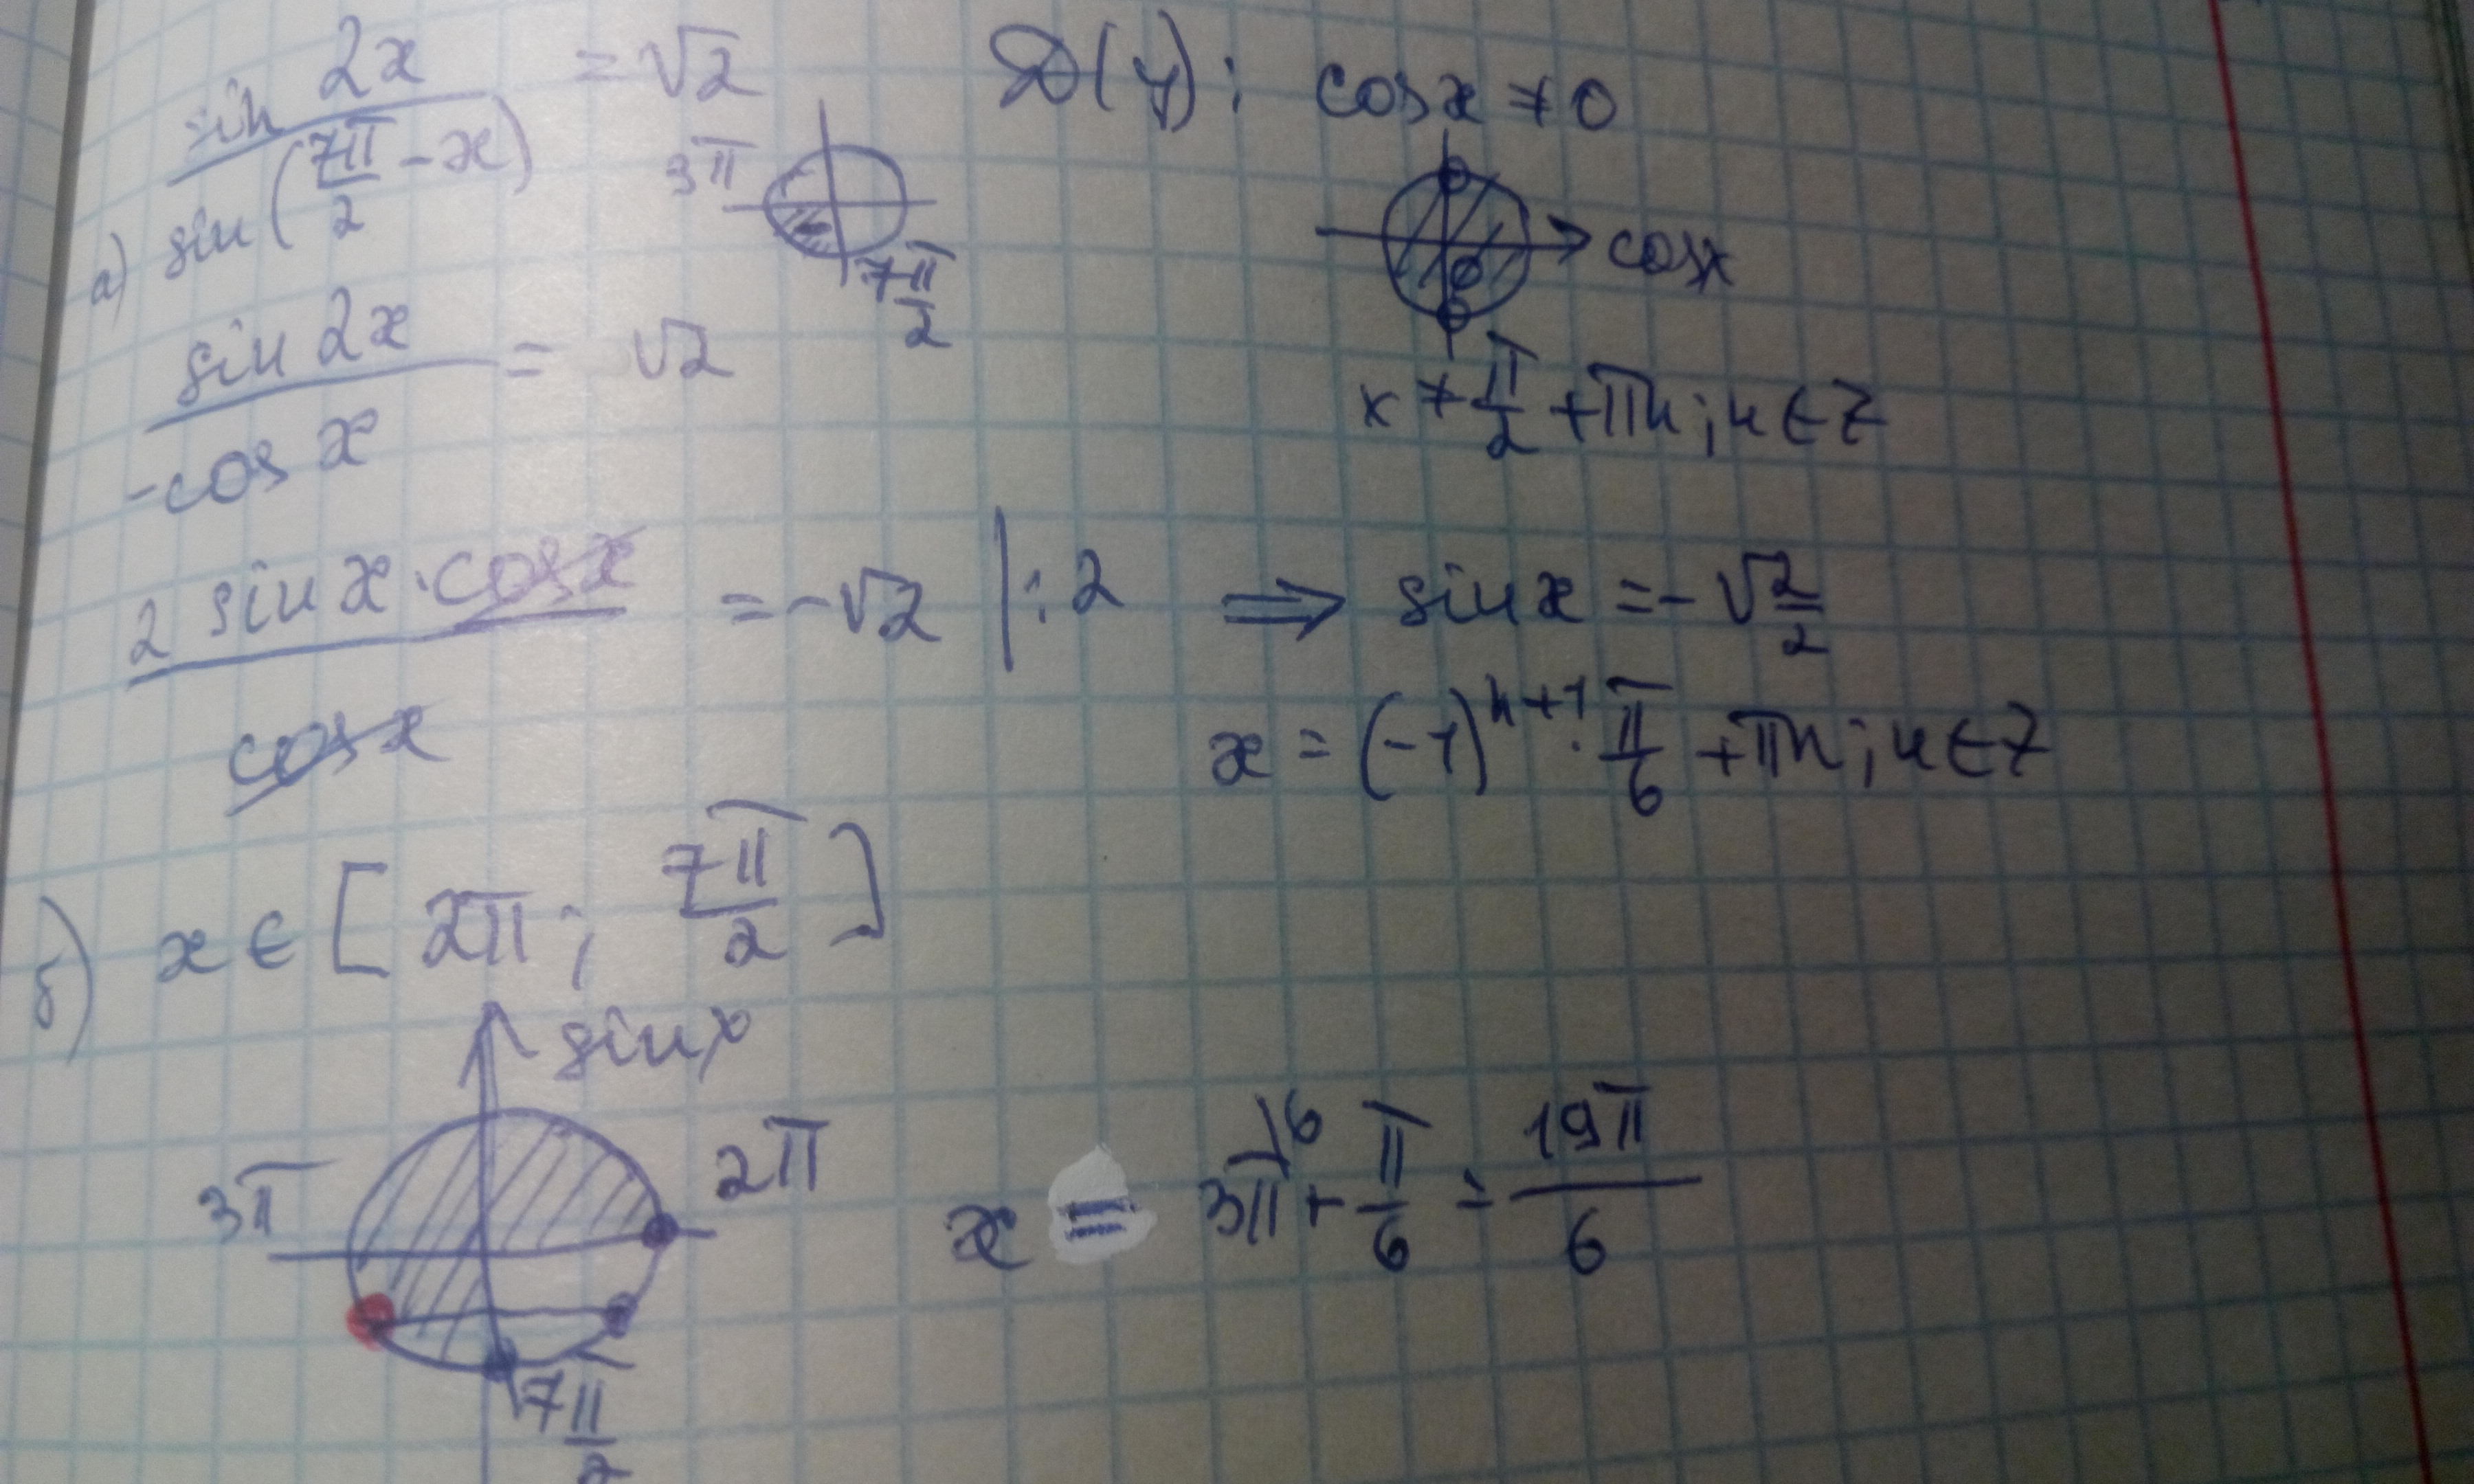 а) sin 2x / sin (7π/2 - x) = √2
3π
7π/2
D(y): cos x ≠ 0
cos x
x ≠ π/2 + πn; n ∈ Z
sin 2x / -cos x = √2
2 sin x · cos x / cos x = -√2 | : 2 ⇒ sin x = - √2/2
x = (-1)^n+1 · π/6 + πn; n ∈ Z
б) x ∈ [2π; 7π/2]
sin x
3π
2π
7π/2
x = 3π\6 + π/6 = 19π/6